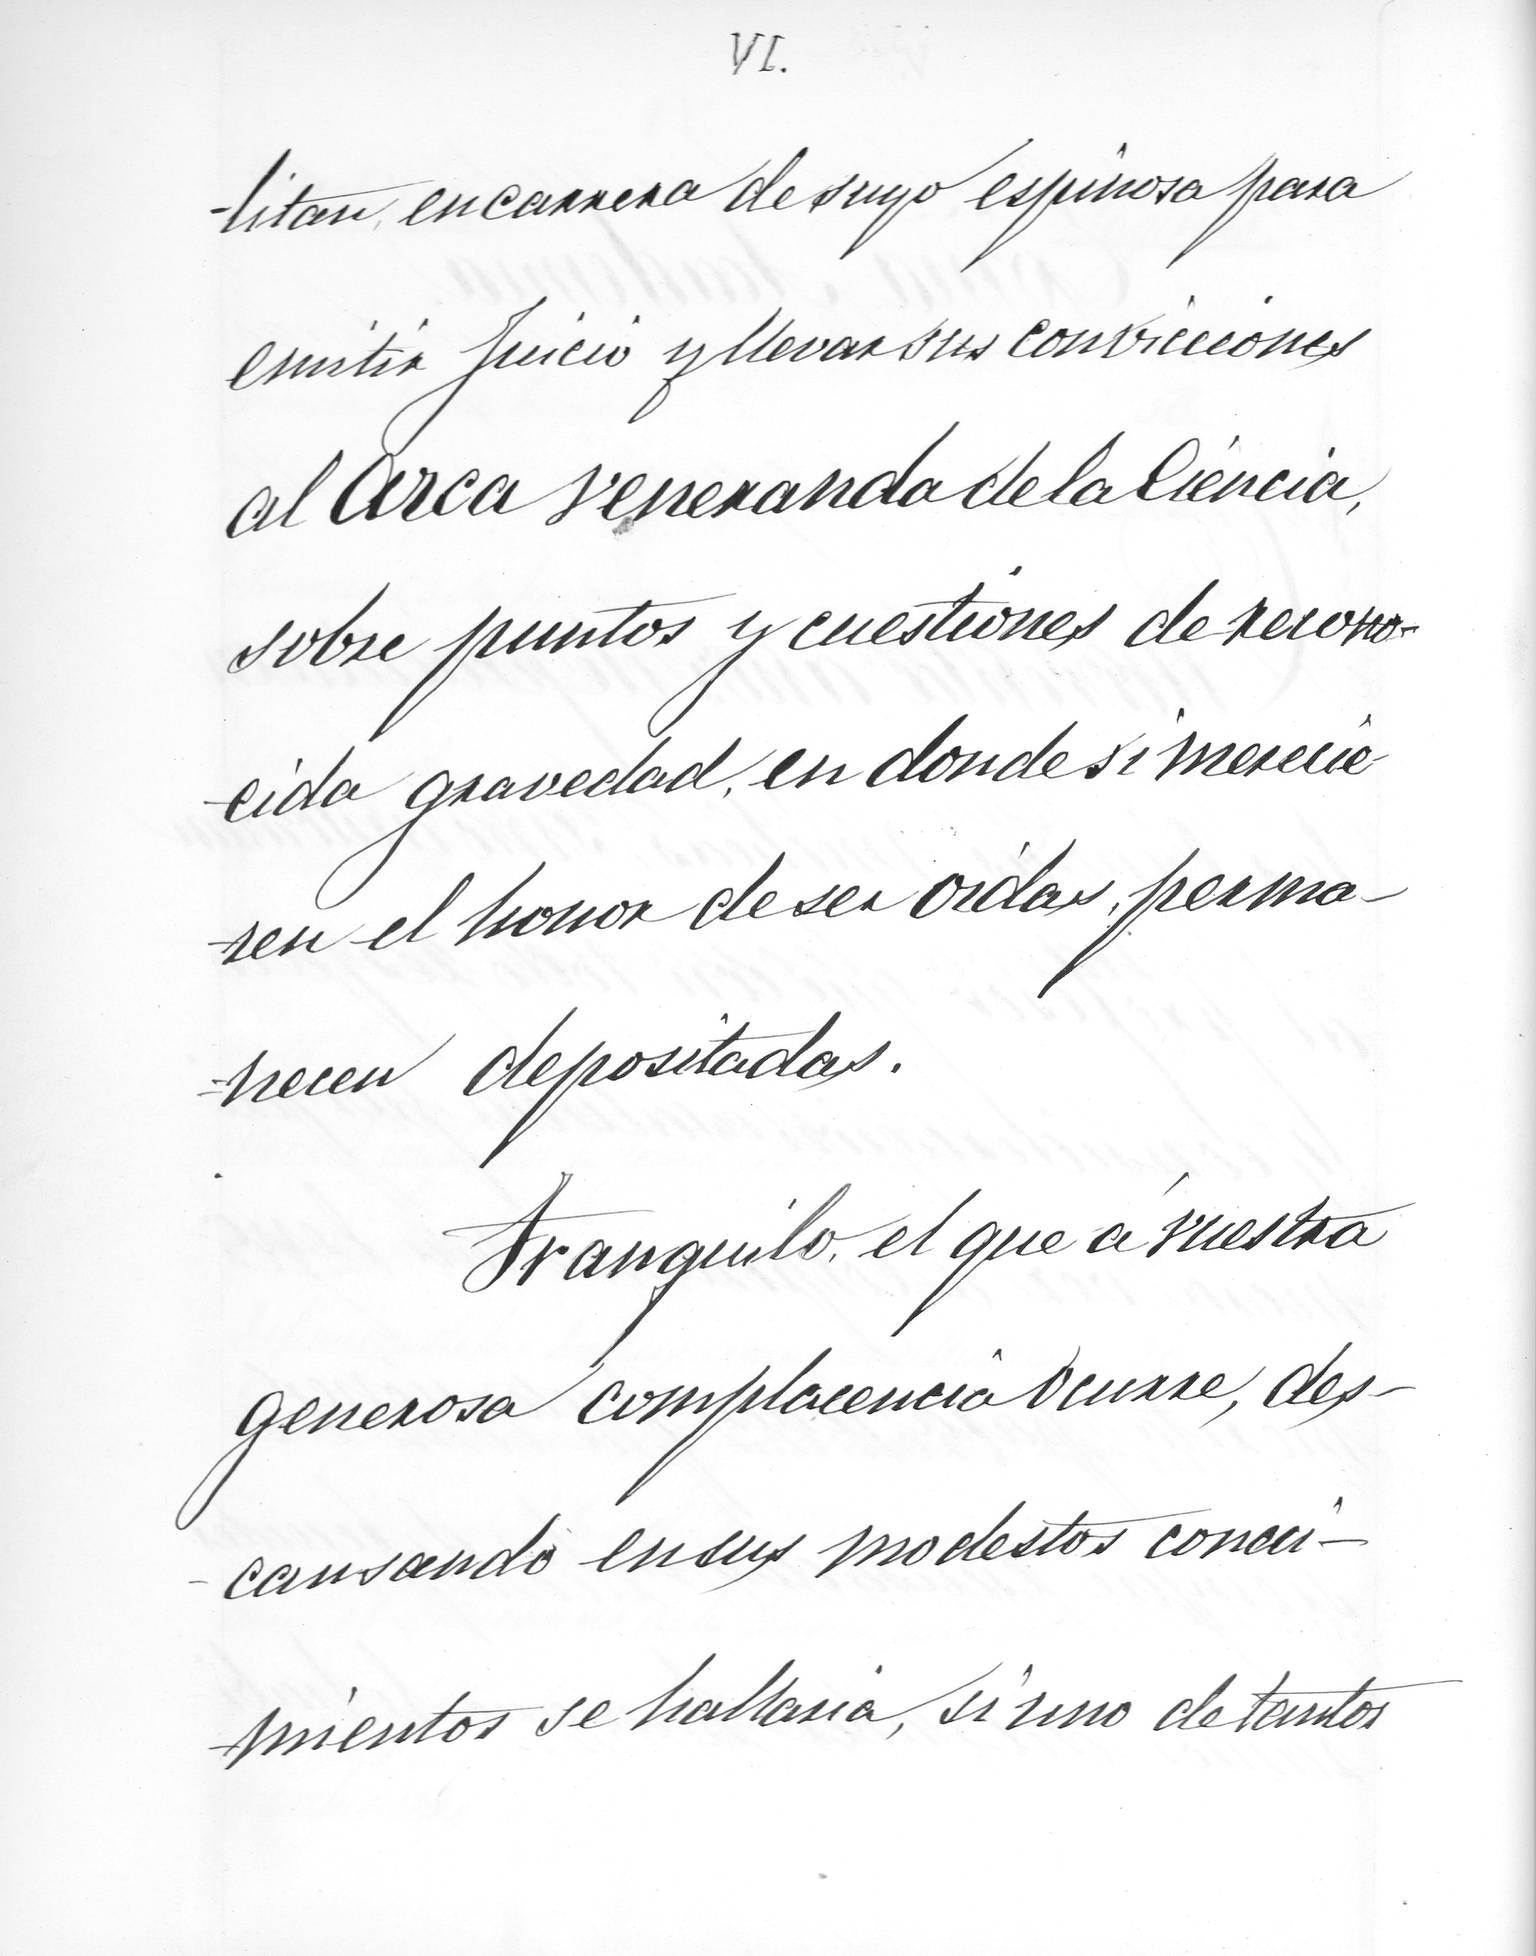 VI.
-litan, en carrera de suyo espinosa para
emitir Juicio y llevar sus convicciones
al Arca veneranda de la Ciencia,
sobre puntos y cuestiones de recono-
-cida gravedad, en donde si merecie-
-ren el honor de ser oidas, perma-
-necen depositadas.
Tranquilo, el que á vuestra
generosa complacencia ocurre, des-
-cansando en sus modestos conoci-
-mientos se hallaria, si uno de tantos